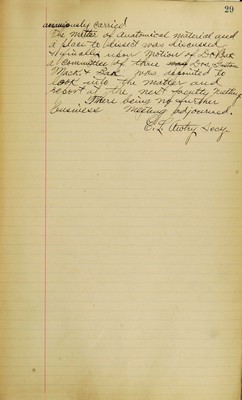 29
animously carried
The matter of anatomical material and
a place to dissect was discussed
& finally upon motion of Dr Peck
a committee of three Drs.
Mack & was appointed to
look into the matter and
report at the next faculty meeting
There being no further
business meeting adjourned.
E. L. Awtry Secy.